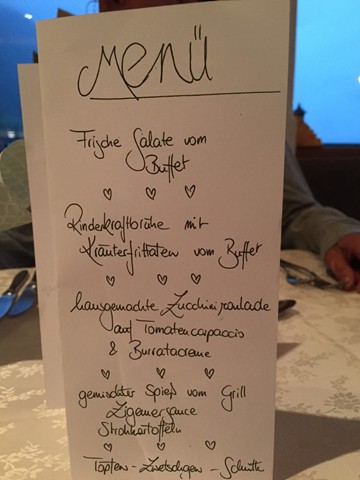 Menü
Frische Salate vom
Buffet
Rinderkraftbrühe mit
Kräuterfrittaten vom Buffet
hausgemachte Zucchiniroulade
auf Tomatencarpaccio
& Burratacreme
gemischter Spieß vom Grill
Zigeunersauce
Strohkartoffeln
Topfen-Zwetschgen-Schnitte